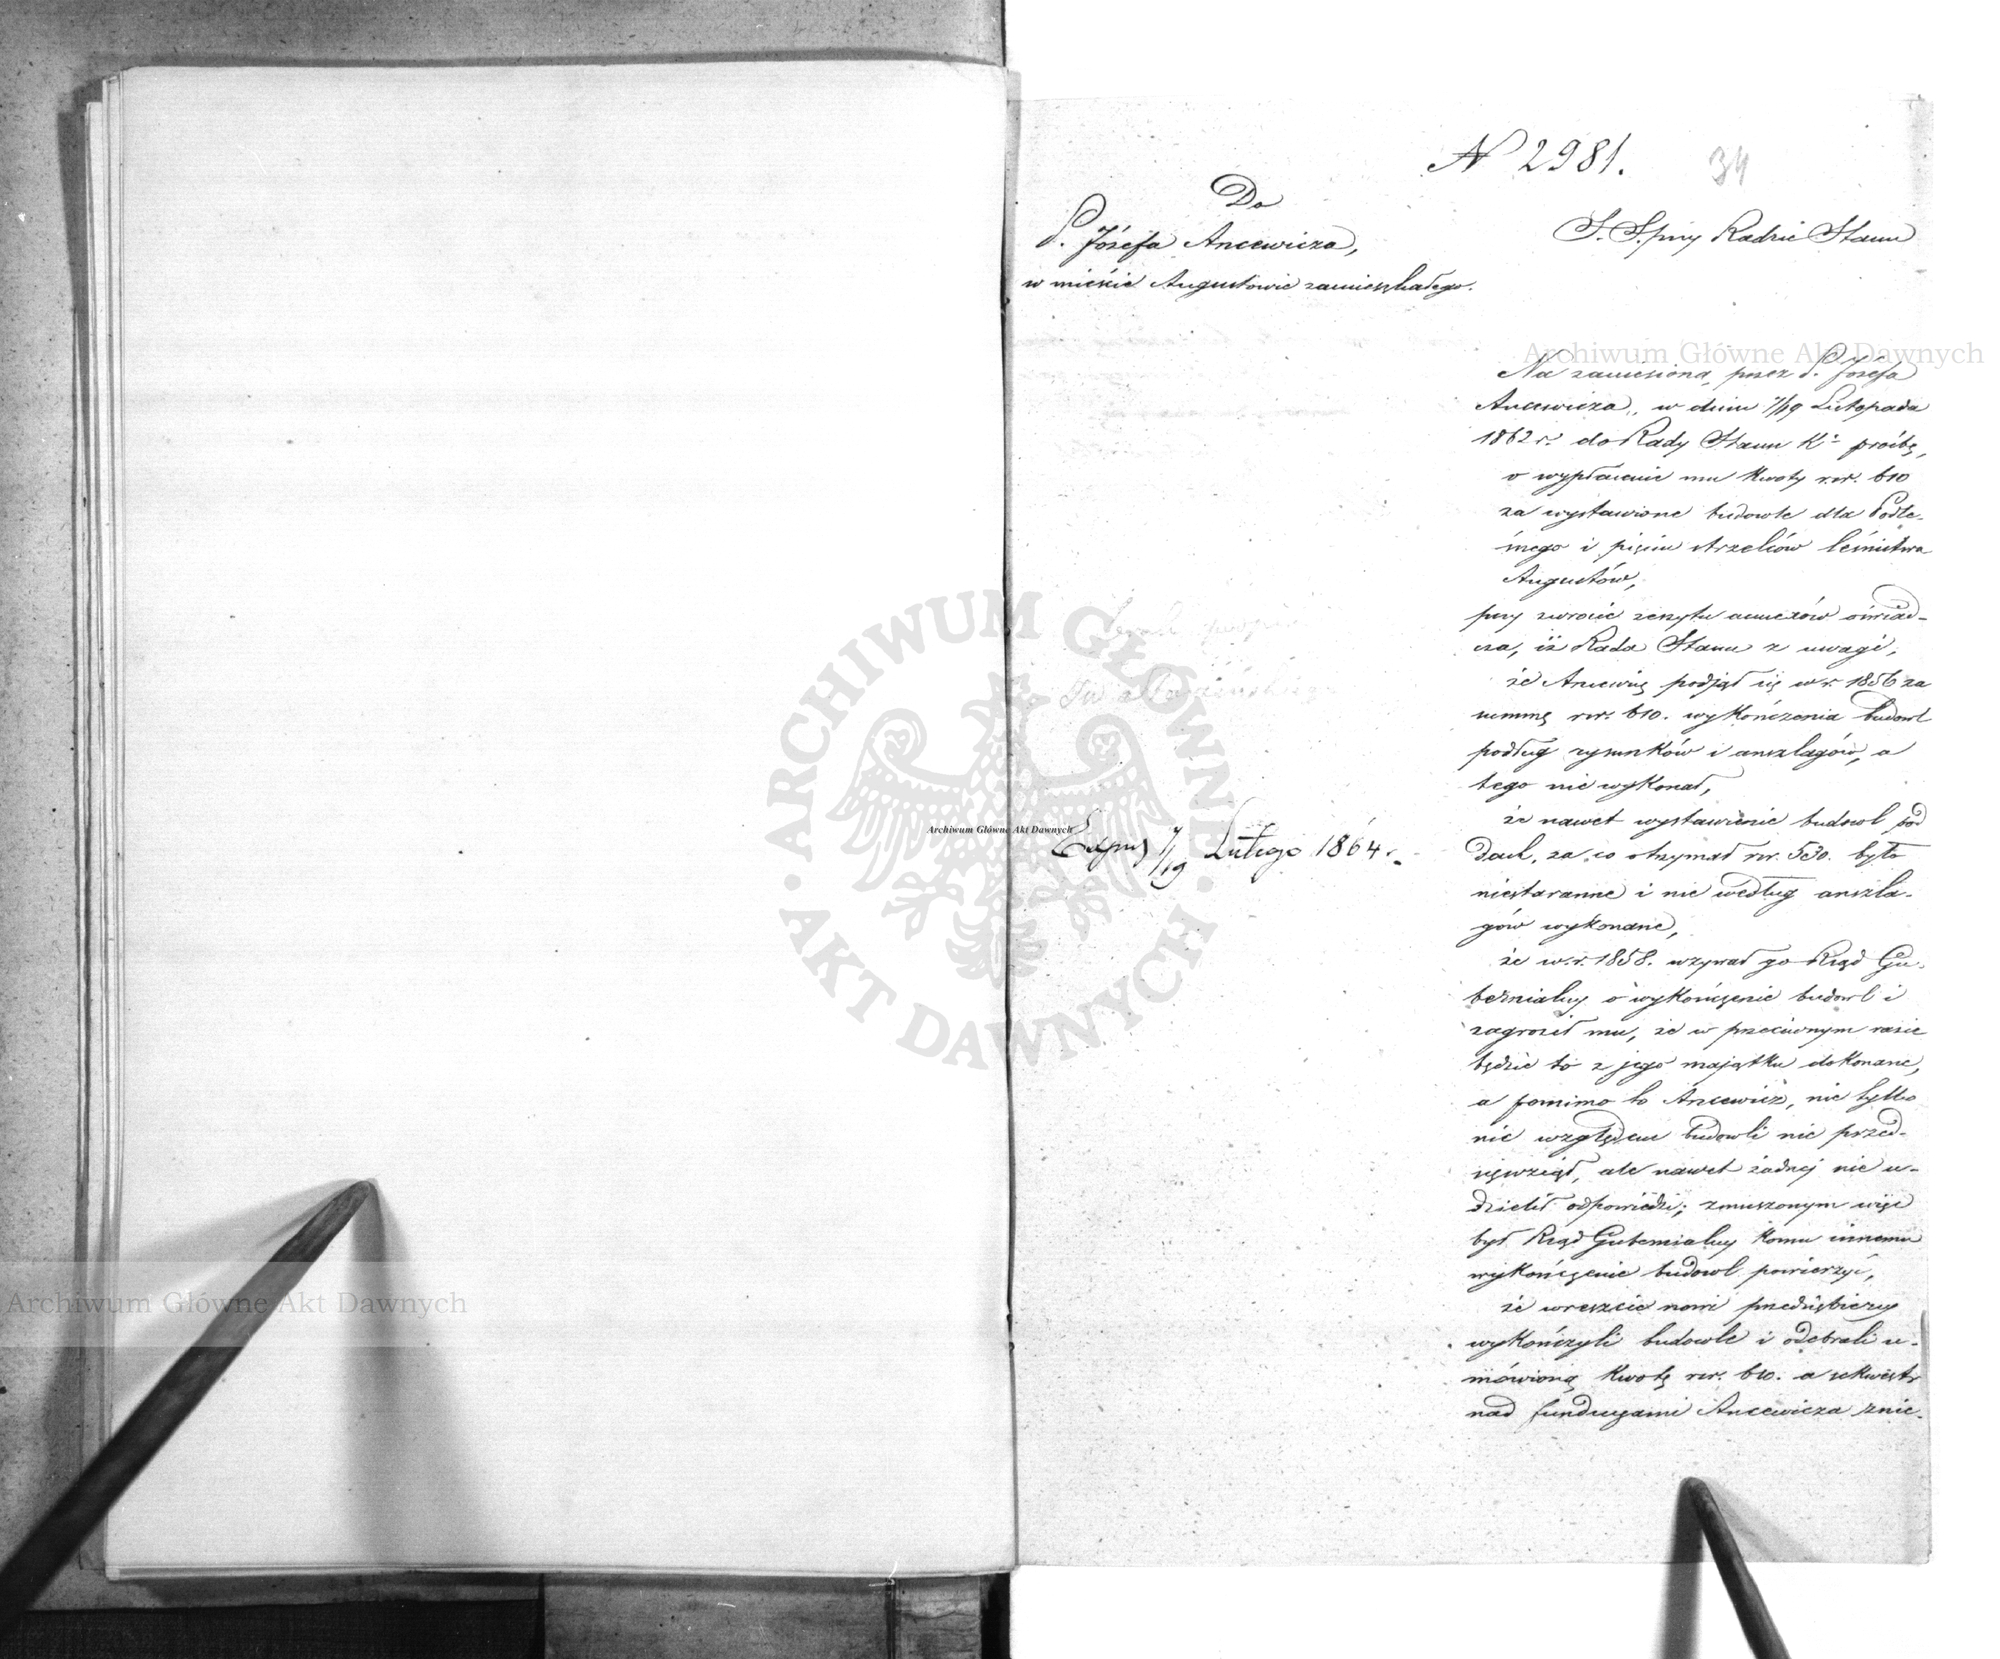 N 2981.
34
Do
P. Józefa Ancewicza,
w mieście Augustowie zamieszkałego.
S. S. przy Radzie Stanu
Na zaniesioną przez P. Józefa
Ancewicza, w dniu 7/19 Listopada
1862 r. do Rady Stanu Kr prośbę,
o wypłacenie mu kwoty rsr. 610
za wystawione budowle dla Podle-
śnego i pięciu strzelców leśnictwa
Augustów,
przy zwrocie zeszytu annexów oświad-
cza, iż Rada Stanu z uwagi,
że Ancewicz podjął się w r. 1856 za
summę rsr. 610. wykończenia budowl
podług rysunków i anszlagów, a
tego nie wykonał,
że nawet wystawienie budowl pod
dach, za co otrzymał rsr. 530. było
niestaranne i nie według anszla-
gów wykonane,
że w r. 1858. wzywał go Rząd Gu-
bernialny o wykończenie budowl i
zagroził mu, że w przeciwnym razie
będzie to z jego majątku dokonane,
a pomimo to Ancewicz, nie tylko
nic względem budowli nie przed-
sięwziął, ale nawet żadnej nie u-
dzielił odpowiedzi; zmuszonym więc
był Rząd Gubernialny komu innemu
wykończenie budowl powierzyć,
że wreszcie nowi przedsiębiercy
wykończyli budowle i odebrali u-
mówioną kwotę rsr. 610. a sekwestr
nad funduszami Ancewicza znie-
Exped 7/19 Lutego 1864 r.
Archiwum Główne Akt Dawnych
Archiwum Główne Akt Dawnych
Archiwum Główne Akt Dawnych
ARCHIWUM GŁÓWNE
AKT DAWNYCH